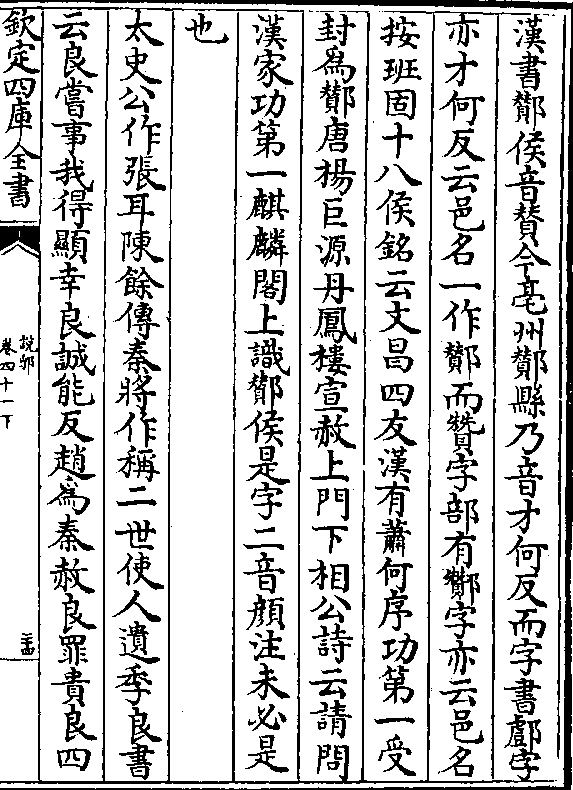 漢書酇侯音賛今亳州酇縣乃音才何反而字書䣜字
亦才何反云邑名一作酇而贊字部有酇字亦云邑名
按班固十八侯銘云文昌四友漢有蕭何序功第一受
封為酇唐楊巨源丹鳳樓宣赦上門下相公詩云請問
漢家功第一麒麟閣上識酇侯是字二音顔注未必是
也
太史公作張耳陳餘傳秦將作稱二世使人遺季良書
云良嘗事我得顯幸良誠能反趙為秦赦良罪貴良四
欽定四庫全書
説郛
卷四十一下